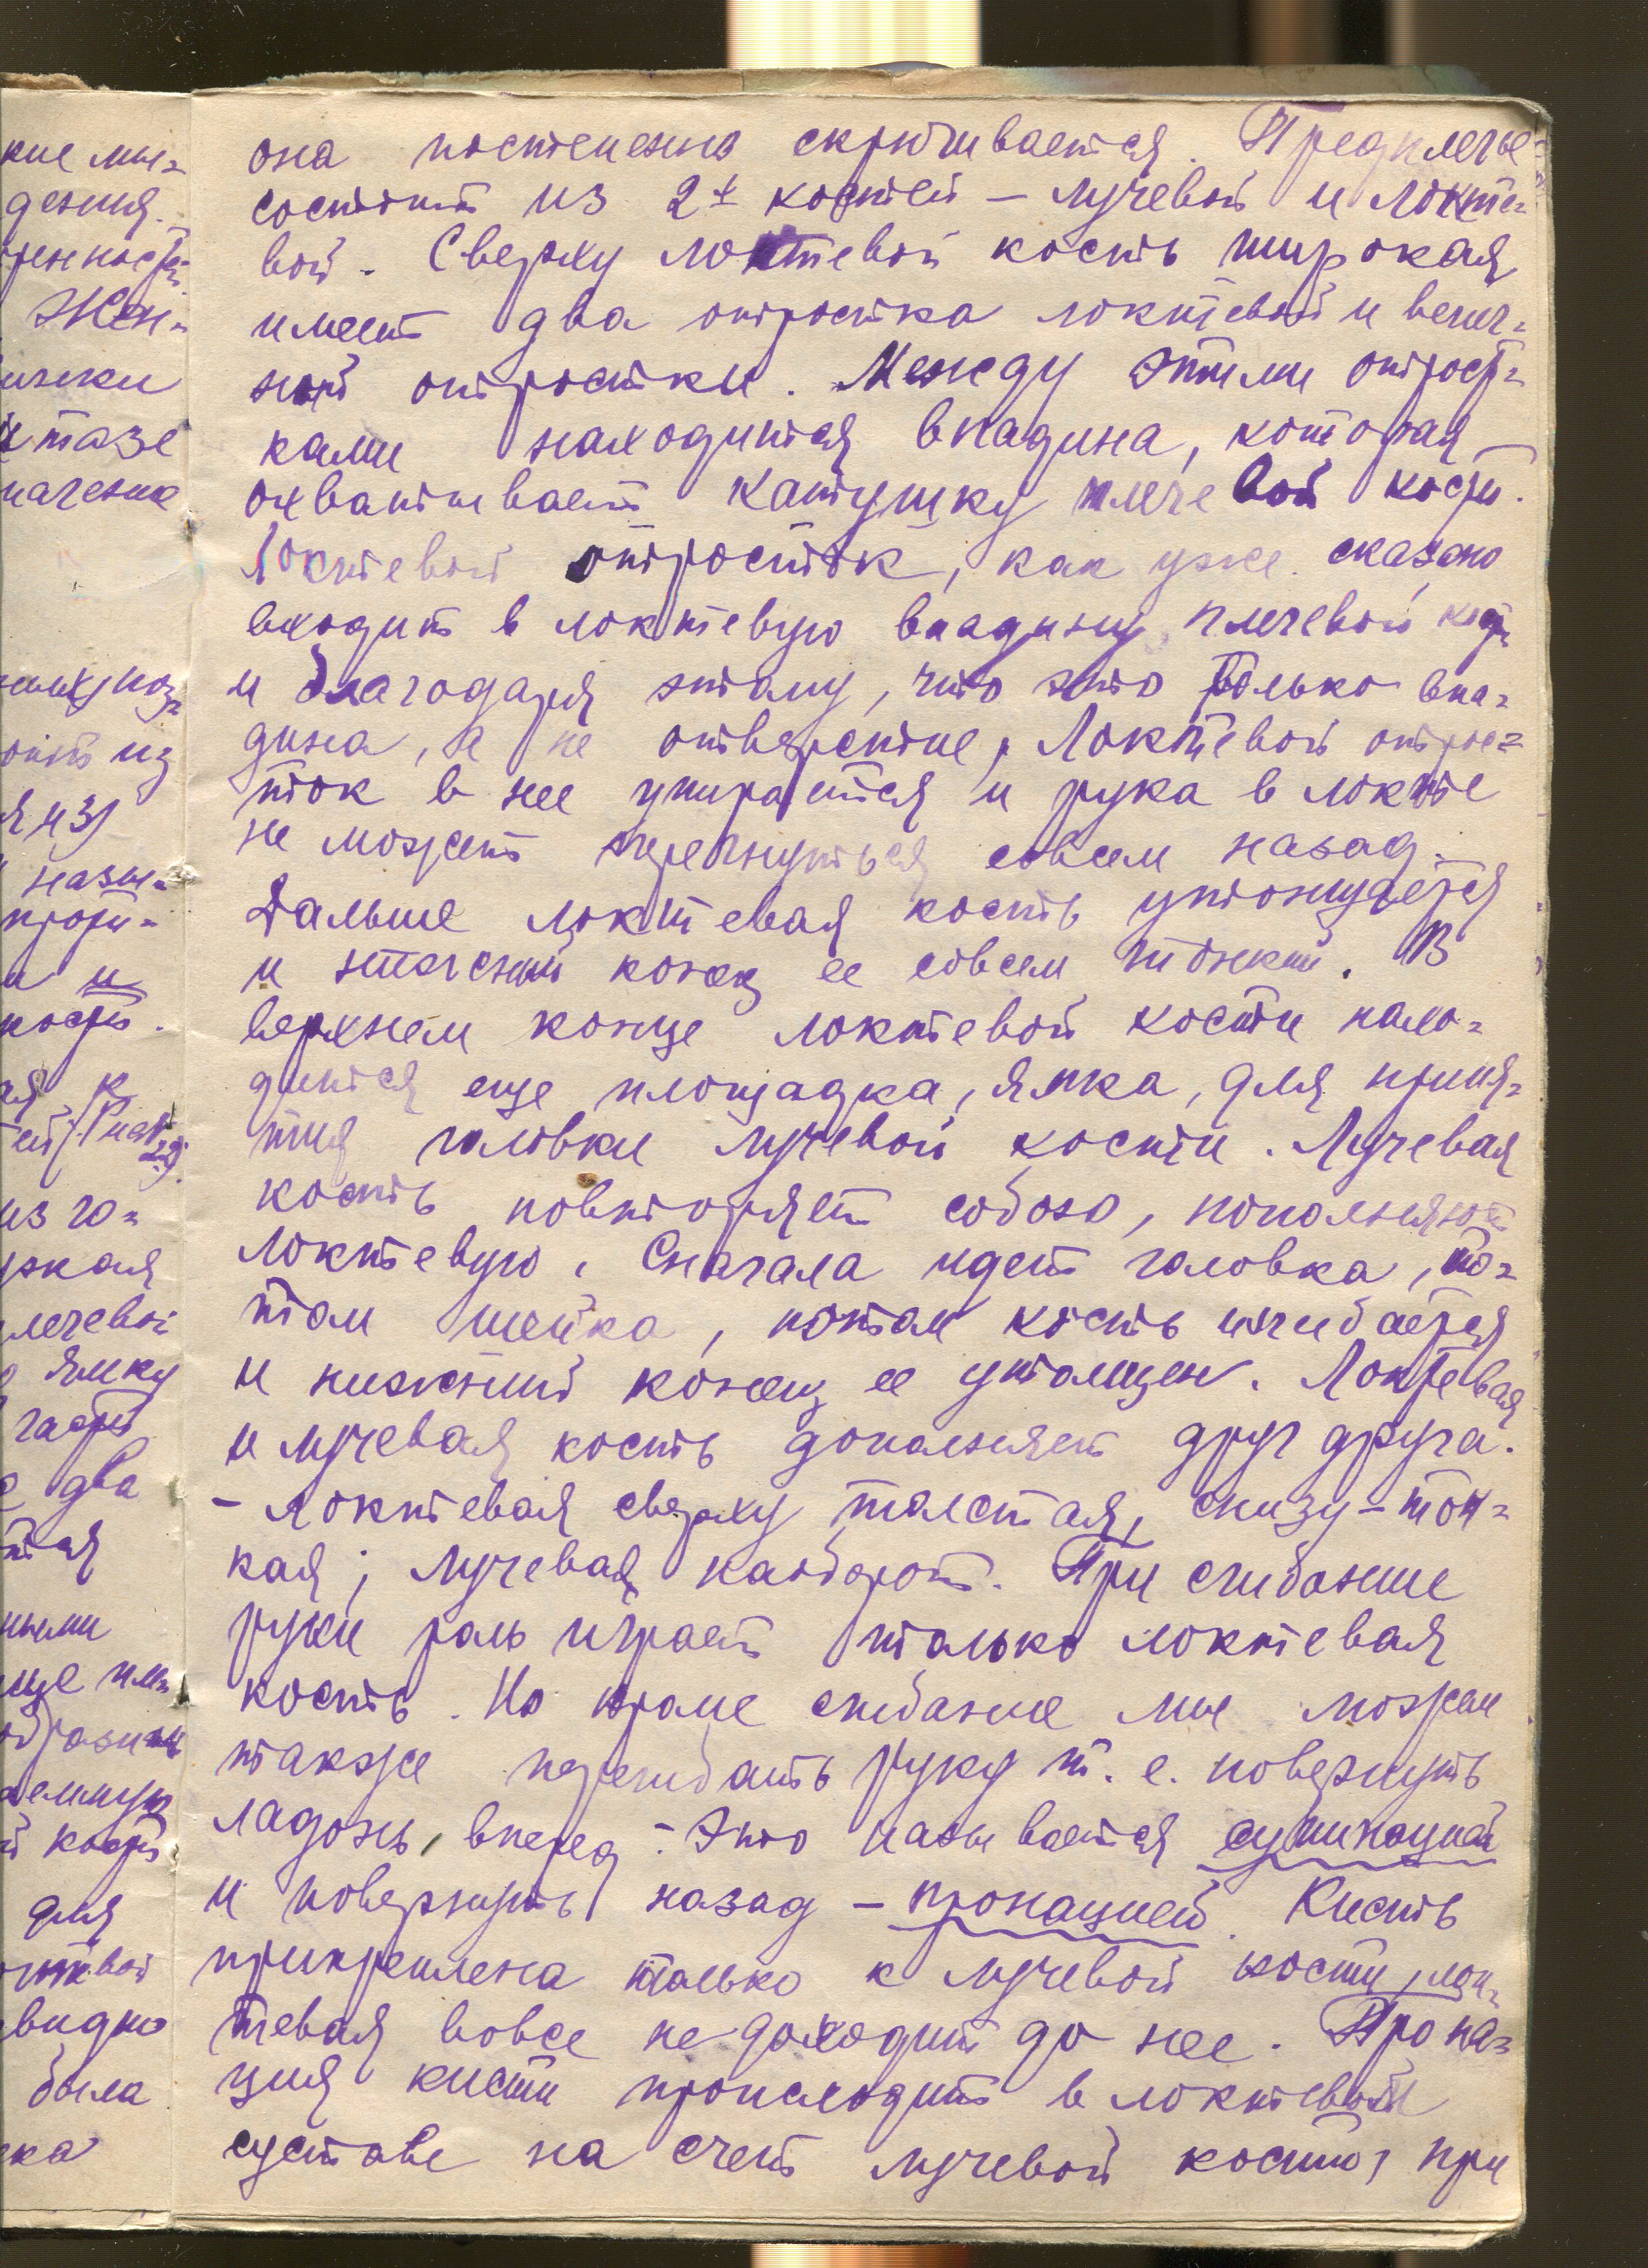 она постепенно скручивается. Предплечье
состоит из 2х костей – лучевой и локте-
вой. Сверху локтевой кость широкая
имеет два отростка локтевой и венеч-
ный отростки. Между этими отрост-
ками находится впадина, которая
охватывает катушку плечевой кости.
Локтевой отросток, как уже сказано
входит в локтевую впадину плечевой кости
и благодаря этому, что это только впа-
дина, а не отверстие, локтевой отрос-
ток в нее упирается и рука в локте
не может перегнуться совсем назад.
Дальше локтевая кость утончается
и нижний конец ее совсем тонкий. В
верхнем конце локтевой кости нахо-
дится еще площадка, ямка, для приня-
тия головки лучевой кости. Лучевая
кость повторяет собою,
локтевую. Сначала идет головка, по-
том шейка, потом кость изгибается
и нижний конец ее утолщен. Локтевая
и лучевая кость дополняет друг друга.
– локтевая сверху толстая, снизу – тон-
кая; лучевая наоборот. При сгибание
руки роль играет только локтевая
кость. Но кроме сгибание мы можем
также перегибать руку т. е. повернуть
ладонь вперед – Это называется супинацией
и повернуть назад – пронацией. Кисть
прикреплена только к лучевой кости, лок-
тевая вовсе не доходит до нее. Прона-
ция кисти происходит в локтевом
суставе на счет лучевой кости, при
кие мы-
дения.
Жен-
тазе
назы-
и
кость.
из го-
лечевой
ямку
часть
два
ными
кость
для
видно
была
ка